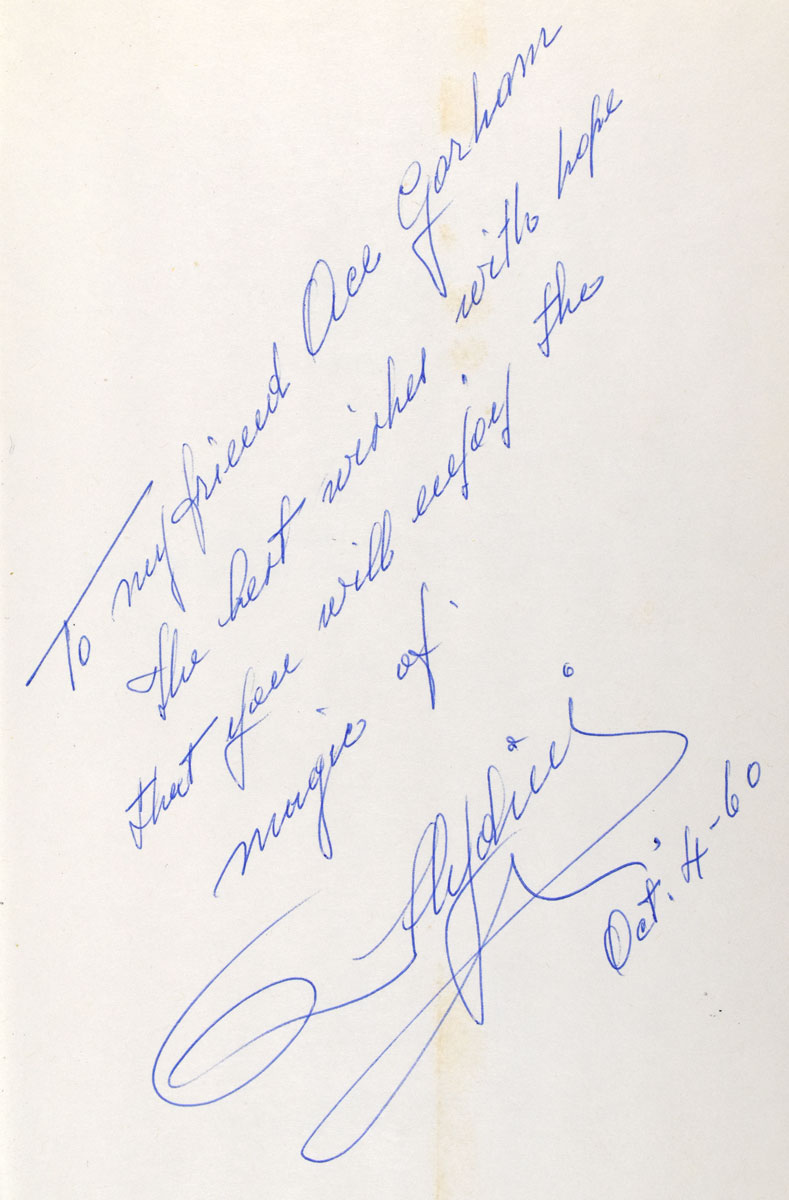 To my friend Ace Gorham
the best wishes, with hope
that you will enjoy the
magic of.
Slydini
Oct. 4-60